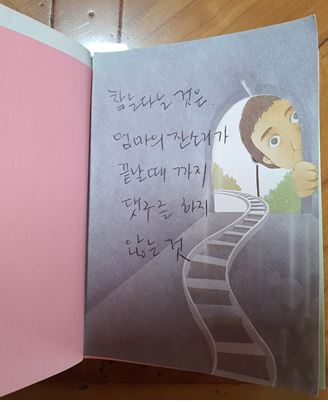 참는다는 것은.
엄마의 잔소리가
끝날때 까지
댓구를 하지
않는 것